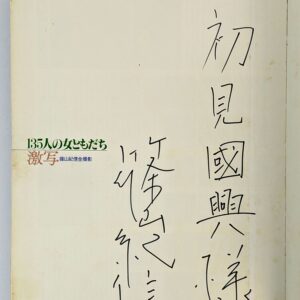 初見國興様
135人の女ともだち
激写 篠山紀信全撮影
篠山紀信